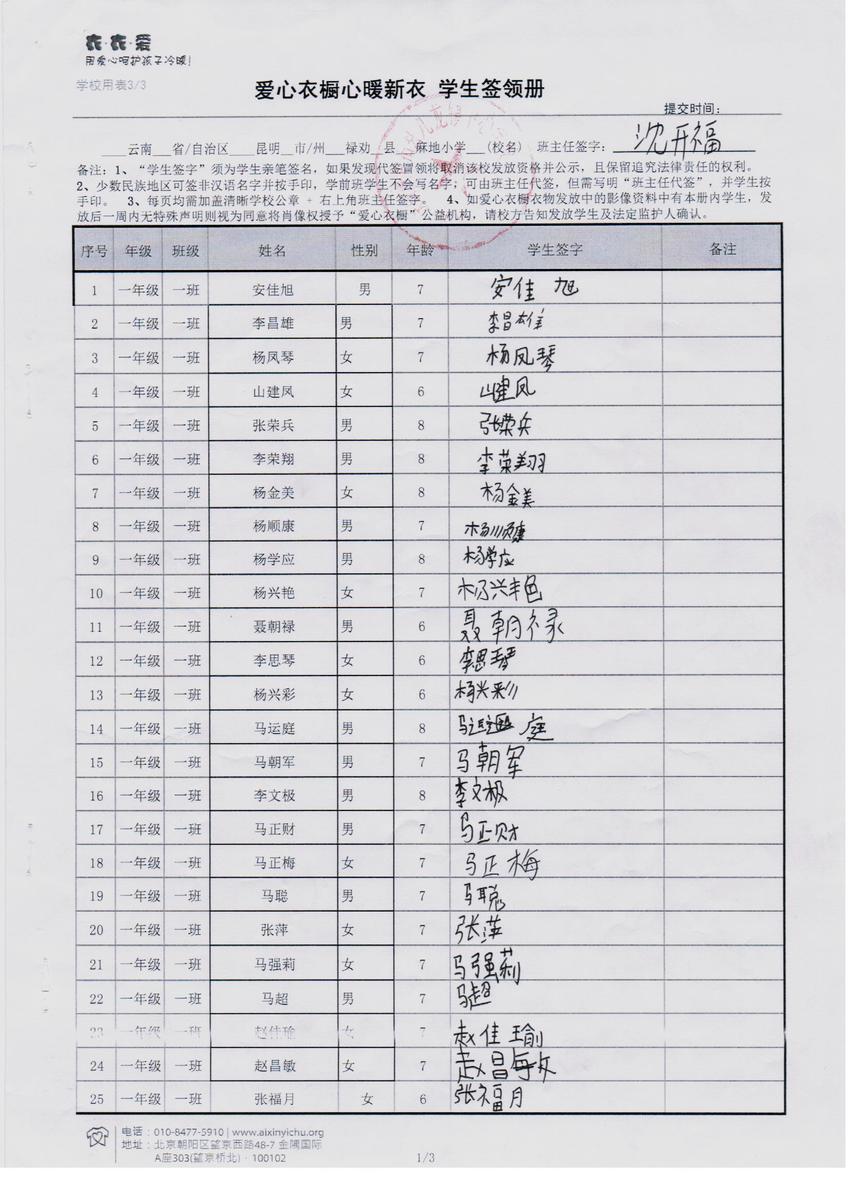 衣·衣·爱
用爱心呵护孩子冷暖!
学校用表3/3
爱心衣橱心暖新衣 学生签领册
提交时间:
云南 省/自治区 昆明 市/州 禄劝 县 麻地小学 (校名) 班主任签字: 沈开福
备注:1、“学生签字”须为学生亲笔签名,如果发现代签冒领将取消该校发放资格并公示,且保留追究法律责任的权利。
2、少数民族地区可签非汉语名字并按手印,学前班学生不会写名字,可由班主任代签,但需写明“班主任代签”,并学生按
手印。 3、每页均需加盖清晰学校公章 + 右上角班主任签字。 4、如爱心衣橱衣物发放中的影像资料中有本册内学生,发
放后一周内无特殊声明则视为同意将肖像权授予“爱心衣橱”公益机构,请校方告知发放学生及法定监护人确认。
序号 年级 班级 姓名 性别 年龄 学生签字 备注
1 一年级 一班 安佳旭 男 7 安佳旭
2 一年级 一班 李昌雄 男 7 李昌雄
3 一年级 一班 杨凤琴 女 7 杨凤琴
4 一年级 一班 山建凤 女 6 山建凤
5 一年级 一班 张荣兵 男 8 张荣兵
6 一年级 一班 李荣翔 男 8 李荣翔
7 一年级 一班 杨金美 女 8 杨金美
8 一年级 一班 杨顺康 男 7 杨顺康
9 一年级 一班 杨学应 男 8 杨学应
10 一年级 一班 杨兴艳 女 7 杨兴艳
11 一年级 一班 聂朝禄 男 6 聂朝禄
12 一年级 一班 李思琴 女 6 李思琴
13 一年级 一班 杨兴彩 女 6 杨兴彩
14 一年级 一班 马运庭 男 8 马运庭
15 一年级 一班 马朝军 男 7 马朝军
16 一年级 一班 李文极 男 8 李文极
17 一年级 一班 马正财 男 7 马正财
18 一年级 一班 马正梅 女 7 马正梅
19 一年级 一班 马聪 男 7 马聪
20 一年级 一班 张萍 女 7 张萍
21 一年级 一班 马强莉 女 7 马强莉
22 一年级 一班 马超 男 7 马超
23 一年级 一班 赵佳瑜 女 7 赵佳瑜
24 一年级 一班 赵昌敏 女 7 赵昌敏
25 一年级 一班 张福月 女 6 张福月
电话:010-8477-5910 | www.aixinyichu.org
地址:北京朝阳区望京西路48-7 金隅国际
A座303(望京桥北)·100102
1/3